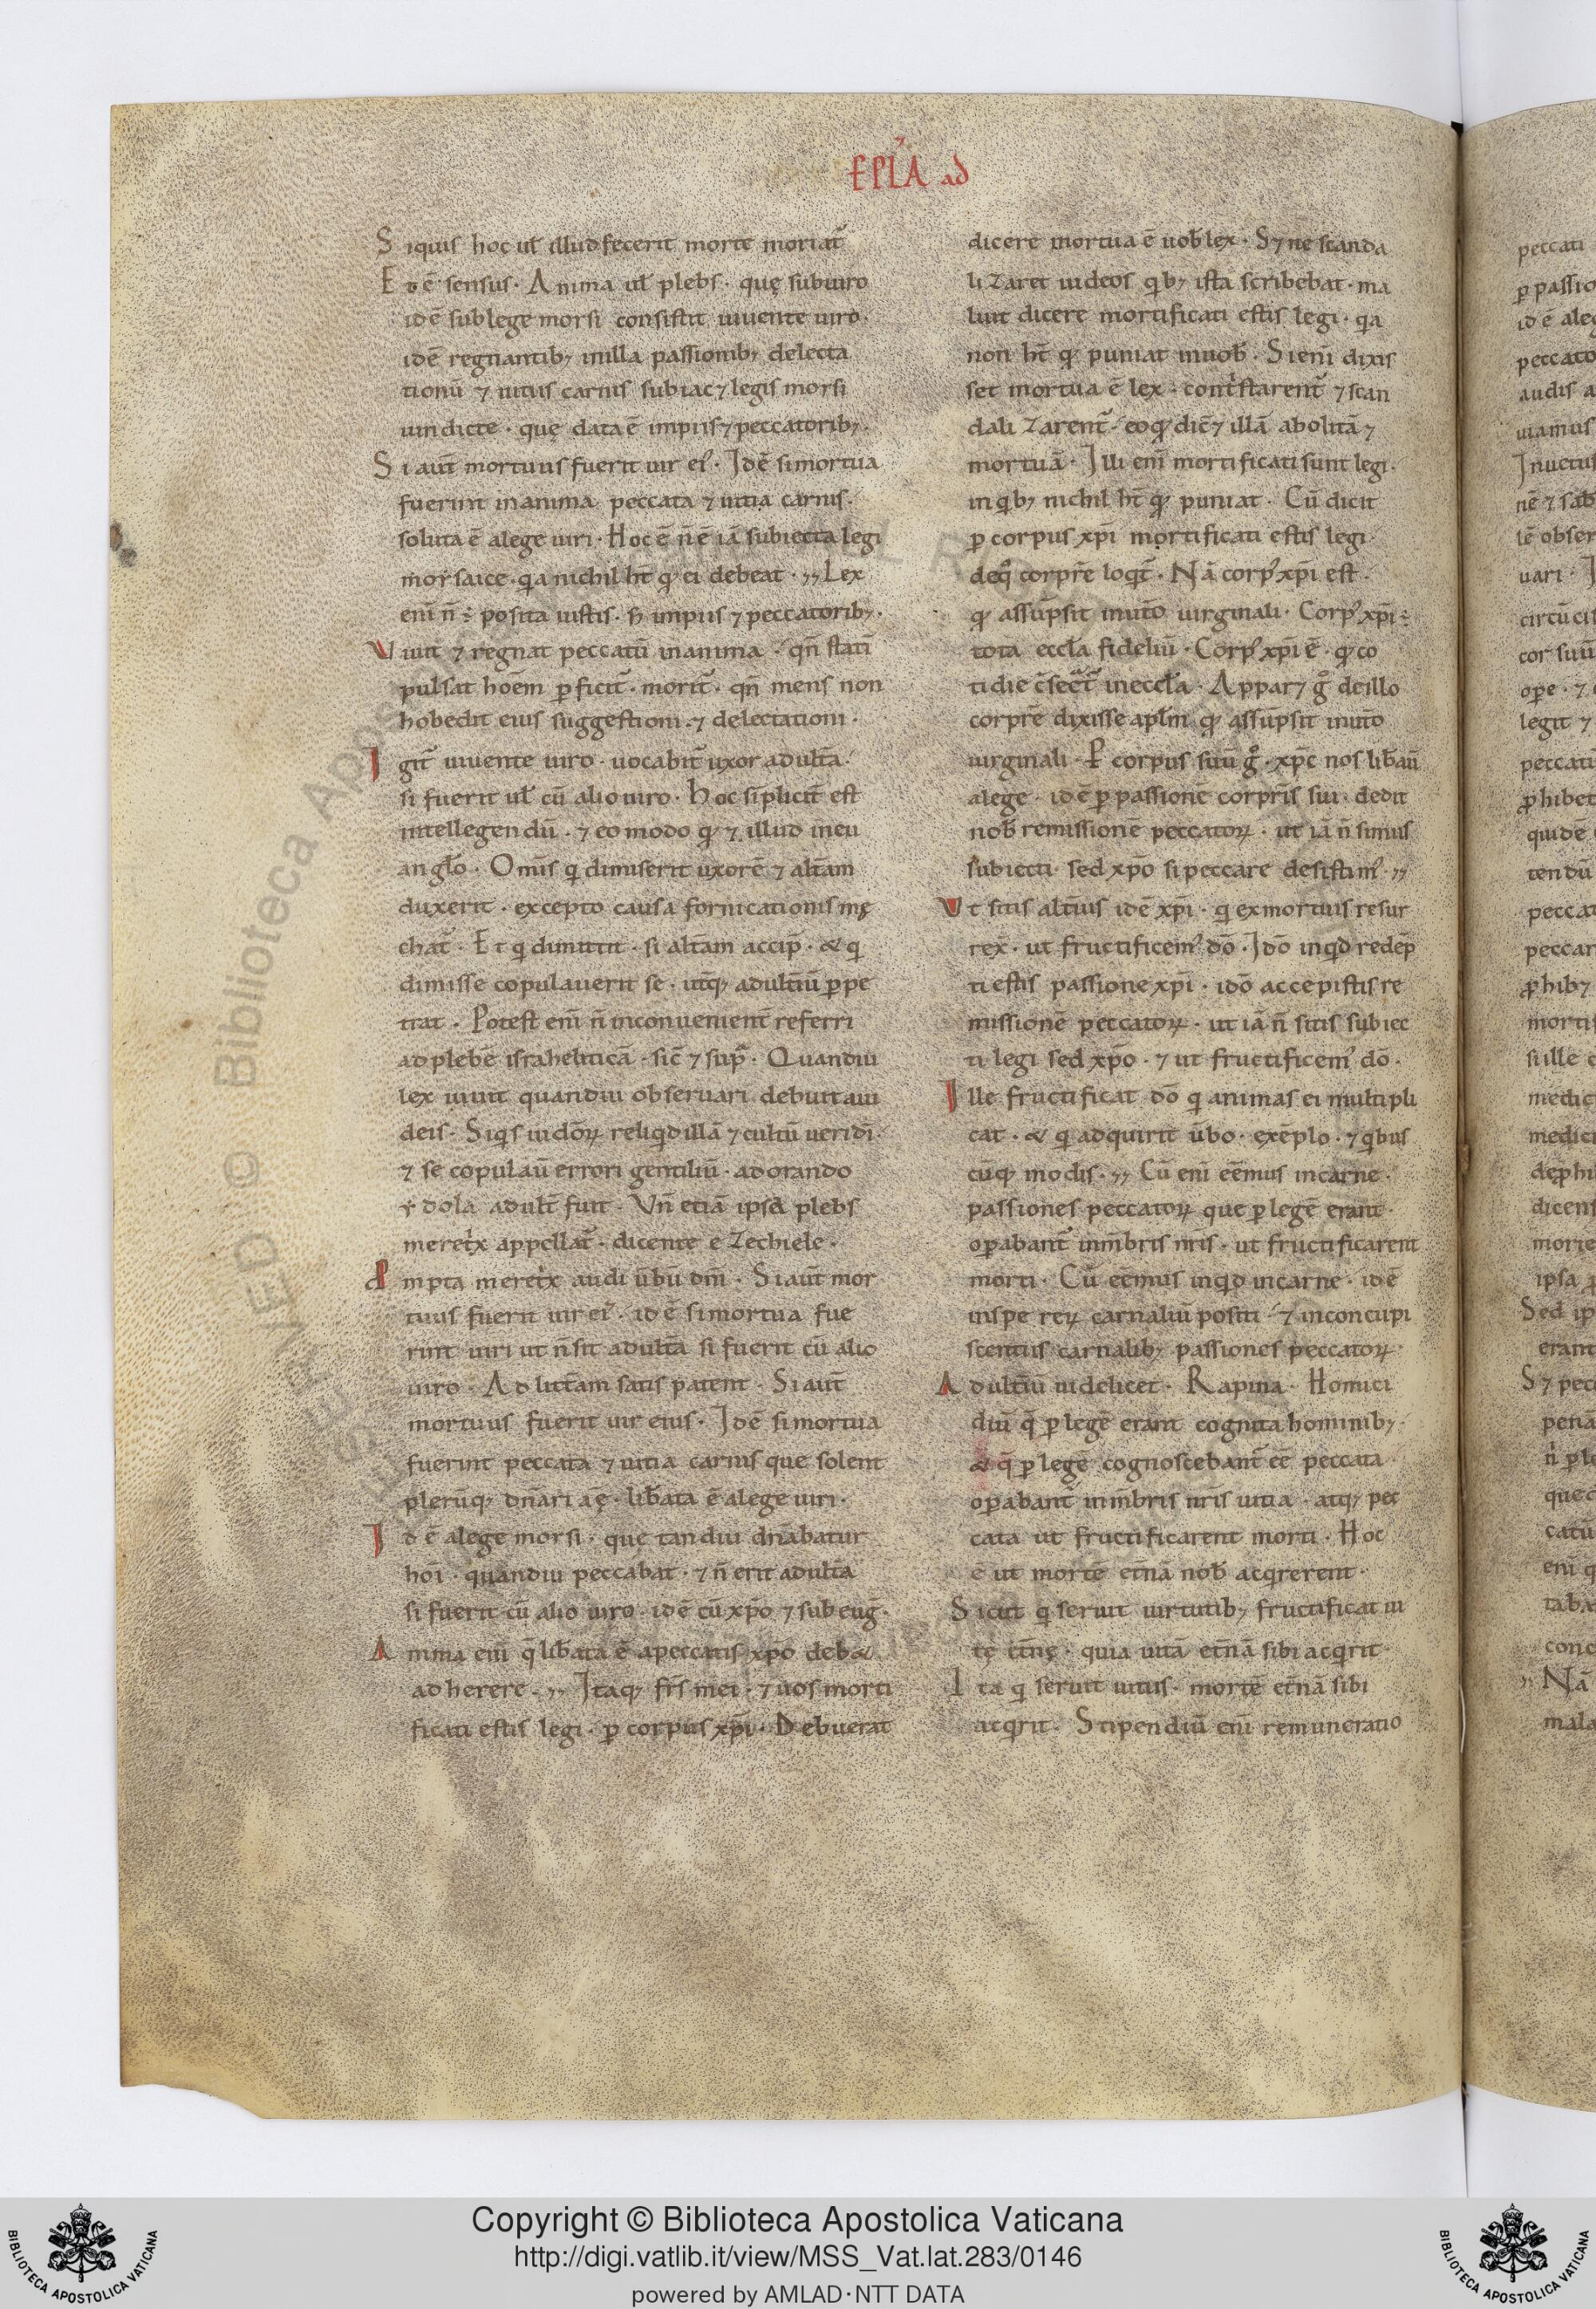 EPĽA ad
Siquis hoc uł illud fecerit morte moriat̃
Et ē sensus. Anima uł plebs. quę subuiro
idē sublege morsi consistit uiuente uiro.
idē regnantibꝫ inilla passionibꝫ delecta
tionū ⁊ uitiis carnis subiac⁊ legis morsi
uindicte. quę data ē impiis ⁊ peccatoribꝫ.
Si aut̄ mortuus fuerit uir ei᾽. Idē simortua
fuerint inanima peccata ⁊ uitia carnis.
soluta ē alege uiri. Hoc ē n̄ ē iā subiecta legi
morsaice. qa nichil ht̄ qđ ei debeat. Lex
enī n̄ ÷ posita iustis. sꝫ impiis ⁊ peccatoribꝫ.
Viuit ⁊ regnat peccatū inanima. qn̄ statī
pulsat hoēm ꝑficit̃. morit̃. qn̄ mens non
hobedit eius suggestioni. ⁊ delectationi.
Igit̃ uiuente uiro. uocabit̃ uxor adult̄a.
si fuerit uł cū alio uiro. Hoc sīplicit̄ est
intellegendū. ⁊ eo modo qđ ⁊ illud ineu
anglo. Omīs q dimiserit uxorē ⁊ alt̄am
duxerit. excepto causa fornicationis mę
chat̃. Et q dimittit. si alt̄am accip̄. & q
dimisse copulauerit se. utq̄ꝫ adult̄iū ꝑpe
trat. Potest enī n̄ inconuenient̄ referri
ad plebē israheliticā. sic̄ ⁊ supᵃ. Quandiu
lex uiuit quandiu obseruari debuit aiu
deis. Siqis iudōꝝ reliqid illā ⁊ cultū ueri dī.
⁊ se copulaū errori gentiliū. adorando
ydola adult̄ fuit. Vn̄ etiā ipsa plebs
meretⁱx appellat̃. dicente eZechiele.
Propta meretⁱx audi ūbū dn̄i. Si aut̄ mor
tuus fuerit uir ei᾽. idē simortua fue
rint uiri ut n̄ sit adult̄a si fuerit cū alio
uiro. Ad litt̄am satis patent. Si aut̄
mortuus fuerit uir eius. Idē simortua
fuerint peccata ⁊ uitia carnis que solent
plerūqꝫ dn̄ari aę. lib̄ata ē alege uiri.
Id ē alege morsi. que tandiu dn̄abatur
hoī. quandiu peccabat. ⁊ n̄ erit adult̄a
si fuerit cū alio uiro. idē cū xp̄o ⁊ sub eug̃.
Anima enī q̄ lib̄ata ē apeccatis xp̄o deb&
ad herere. Itaqꝫ fr̄s mei. ⁊ uos morti
ficati estis legi. ꝑ corpus xp̄i. Debuerat
dicere mortua ē uob̄ lex. S⁊ ne scanda
liZaret iudeos qibꝫ ista scribebat. ma
luit dicere mortificati estis legi. qa
non ht̄ qđ puniat inuob̄. Si enī dixis
set mortua ē lex. contⁱstarent̃ ⁊ scan
daliZarent̃. eo qđ dic̄⁊ illā abolitā ⁊
mortuā. Illi enī mortificati sunt legi.
in qibꝫ nichil ht̄ qđ puniat. Cū dicit
ꝑ corpus xp̄i mortificati estis legi.
deqº corpr̄e loqit̃. Nā corp᾽ xp̄i est.
qđ assūpsit inut̄o uirginali. Corp᾽ xp̄i ÷
tota eccl̄a fideliū. Corp᾽ xp̄i ē. qđ co
tidie c̄secᵃt̃ ineccl̄a. Appar⁊ gº deillo
corpr̄e dixisse apl̄m qđ assūpsit inut̄o
uirginali. Ꝑ corpus suū gº. xp̄c nos lib̄aū
alege. idē ꝑ passionē corpr̄is sui. dedit
nob̄ remissionē peccatoꝝ. ut iā n̄ simus
subiecti. sed xp̄o si peccare desistim᾽.
Vt sitis alt̄ius idē xp̄i. q exmortuis resur
rex̄. ut fructificem᾽ dō. Idō inqid redēp
ti estis passione xp̄i. idō accepistis re
missionē peccatoꝝ. ut iā n̄ sitis subiec
ti legi sed xp̄o. ⁊ ut fructificem᾽ dō.
Ille fructificat dō q animas ei multipli
cat. & q adquirit ūbo. exēplo. ⁊ qibus
cūqꝫ modis. Cū enī eēmus incarne.
passiones peccatoꝝ que ꝑ legē erant.
oꝑabant̃ inm̄bris nr̄is. ut fructificarent
morti. Cū eēmus inqid incarne. idē
inspe reꝝ carnaliū positi. ⁊ inconcupi
scentiis carnalibꝫ passiones peccatoꝝ.
Adult̄iū uidelicet. Rapina. Homici
diū q̄ ꝑ legē erant cognita hominibꝫ.
& q̄ ꝑ legē cognoscebant̃ eē peccata.
oꝑabant̃ inm̄bris nr̄is uitia. atqꝫ pec
cata ut fructificarent morti. Hoc
ē ut mortē et̄nā nob̄ acqirerent.
Sicut q seruit uirtutibꝫ fructificat ui
tę et̄nę. quia uitā et̄nā sibi acqirit.
Ita q seruit uitiis. mortē et̄nā sibi
acqirit. Stipendiū enī remuneratio
Copyright © Biblioteca Apostolica Vaticana
http://digi.vatlib.it/view/MSS_Vat.lat.283/0146
powered by AMLAD·NTT DATA